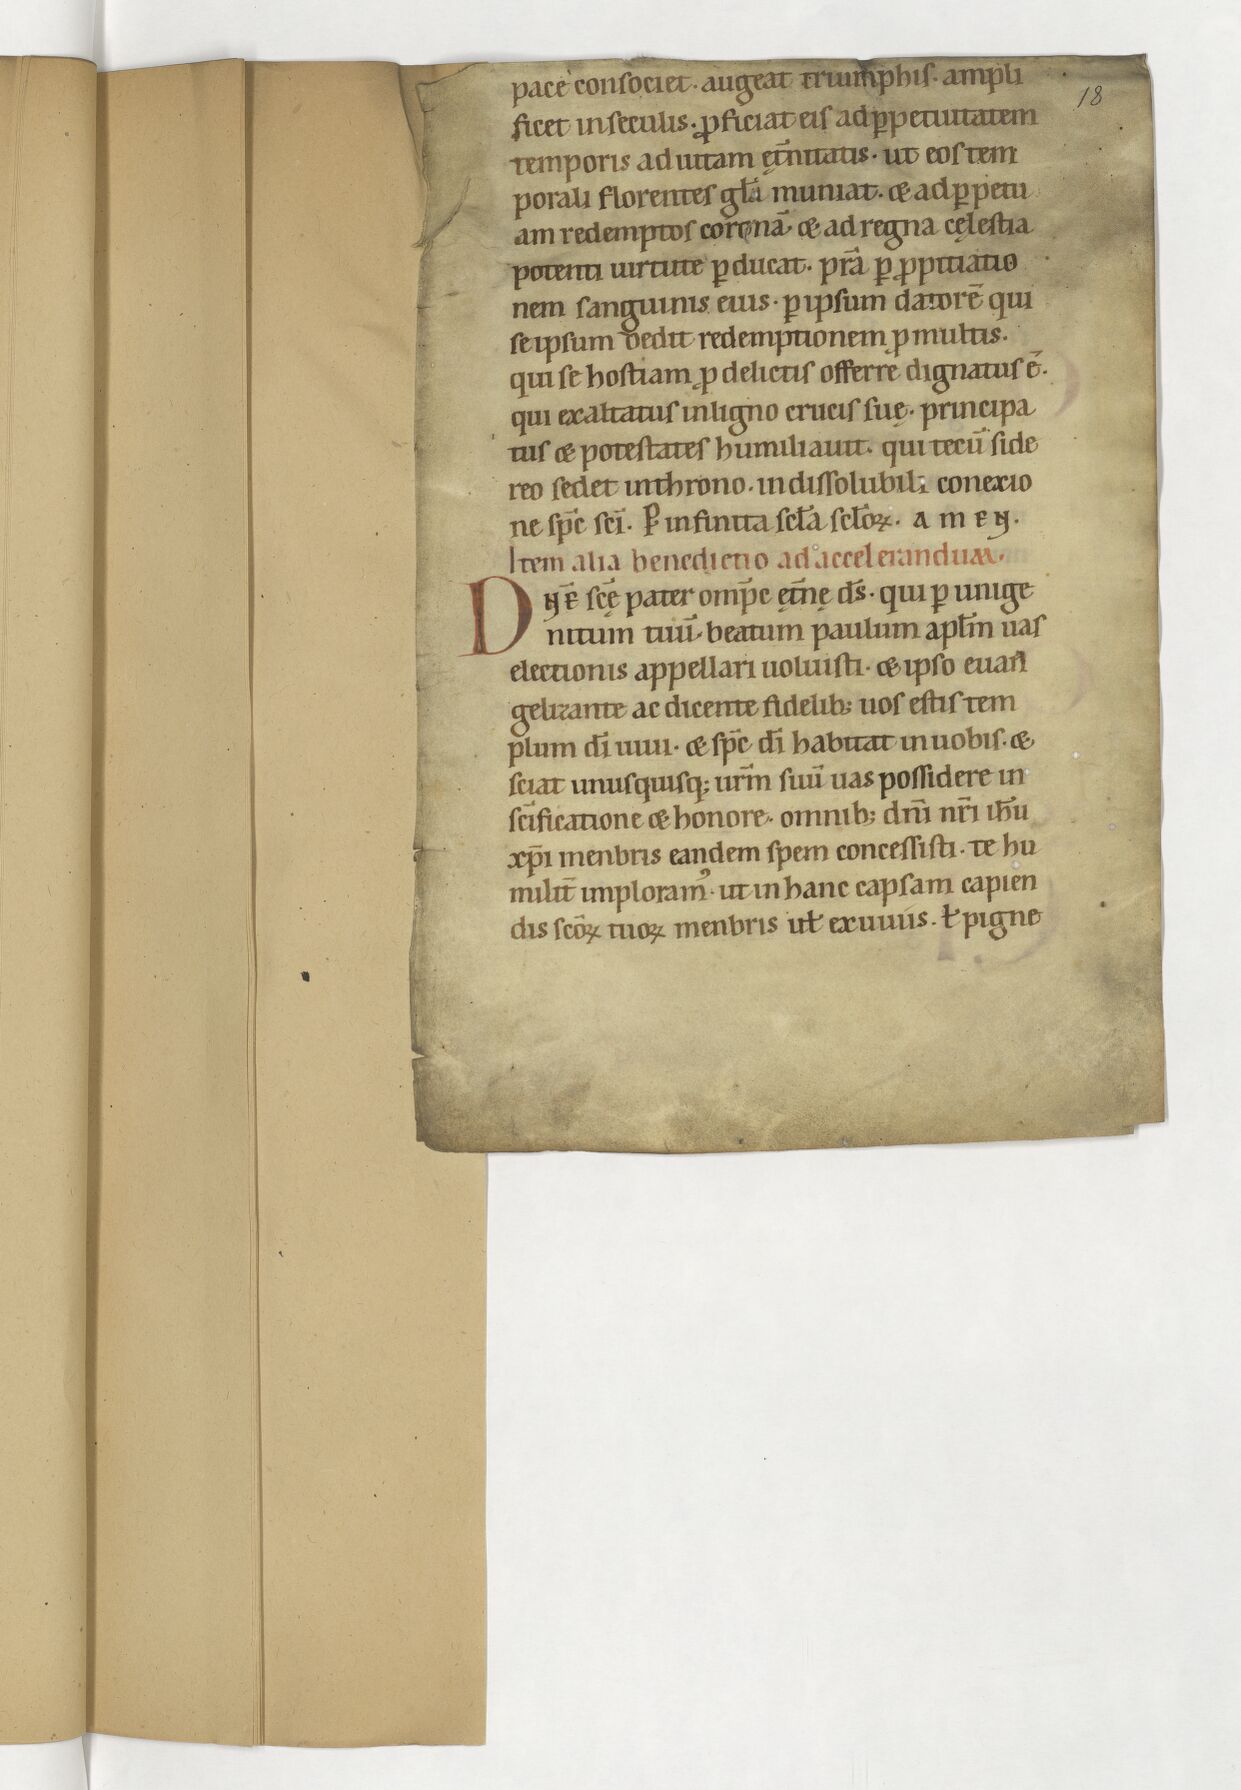 18
pacē consociet · augeat triumphis · ampli
ficet in seculis · ꝓficiat eis ad ꝑpetuitatem
temporis ad uitam ęt̄nitatis · ut eos tem
porali florentes gl̄a muniat · & ad ꝑpetu
am redemptos coronā · & ad regna cęlestia
potenti uirtute ꝑducat · prā ꝑ ꝓpitiatio
nem sanguinis eius · ꝑ ipsum datorē qui
se ipsum dedit redemptionem ꝓ multis ·
qui se hostiam ꝓ delictis offerre dignatus ē ·
qui exaltatus in ligno crucis suę · principa
tus & potestates humiliauit · qui tecū side
reo sedet in throno · indissolubili conexio
ne sp̄c sc̄i · Ꝑ infinita scl̄a scl̄oꝝ · a m e n ·
Item alia benedictio ad accelerandum ·
Dn̄e sc̄ę pater omp̄c ęt̄nę d̄s · qui ꝑ unige
nitum tuū · beatum paulum apl̄m uas
electionis appellari uoluisti · & ipso euan
gelizante ac dicente fidelib; uos estis tem
plum dī uiui · & sp̄c dī habitat in uobis · &
sciat unusquisq; ur̄m suū uas possidere in
sc̄ificatione & honore · omnib; dn̄i nr̄i ih̄u
xp̄i menbris eandem spem concessisti · te hu
milit̄ imploram᾽ · ut in hanc capsam capien
dis sc̄oꝝ tuoꝝ menbris uł exuuiis · ł pigne